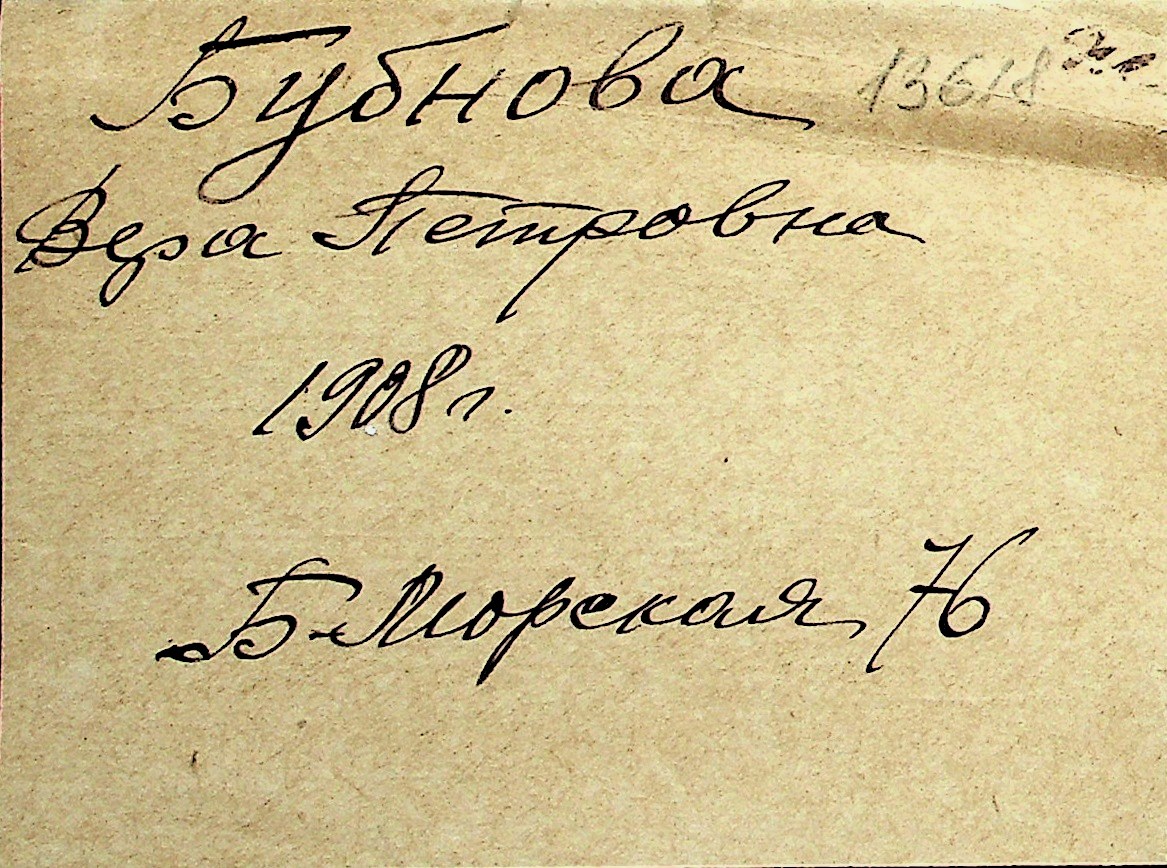 Бубнова 13618
Вера Петровна
1908 г.
Б-Морская 76